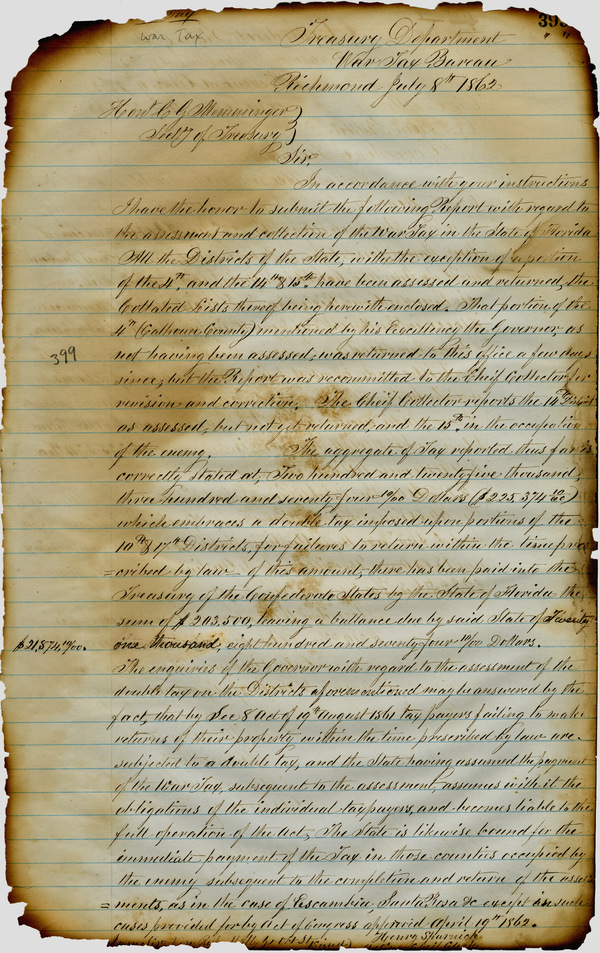 War Tax
399
Treasury Department
War Tax Bureau
Richmond July 8th 1862
Honl C G Memminger
Secty of Treasury
Sir,
In accordance with your instructions
I have the honor to submit the following Report with regard to
the assessment and collection of the War Tax in the State of Florida
All the Districts of the State, with the exception of a portion
of the 4th, and the 14th & 15th have been assessed and returned, the
Collated Lists thereof being herewith enclosed. That portion of the
4th (Calhoun County) mentioned by his Excellency the Governor, as
not having been assessed, was returned to this office a few days
since, but the Report was recommitted to the Chief Collector for
revision and correction. The Chief Collector reports the 14th District
as assessed, but not yet returned, and the 15th in the occupation
of the enemy. The aggregate of Tax reported thus far is
correctly stated at, Two hundred and twenty five thousand,
three hundred and seventy four 10/00 Dollars ($225,374 10/00)
which embraces a double tax imposed upon portions of the
10th & 17th Districts, for failures to return within the time pres
=cribed by law of this amount, there has been paid into the
Treasury of the Confederate States by the State of Florida the
sum of $203,500, leaving a ballance due by said State of Twenty
$21,874 10/00. one thousand, eight hundred and seventy four 10/00 Dollars.
The enquiries of the Governor with regard to the assessment of the
double tax on the Districts aforementioned may be answered by the
fact, that by Sec 8 Act of 19th August 1861 tax payers failing to make
returns of their property within the time prescribed by law are
subjected to a double tax, and the State having assumed the payment
of the War Tax, subsequent to the assessment, assumes with it the
obligations of the individual taxpayers, and becomes liable to the
full operation of the Act, The State is likewise bound for the
immediate payment of the Tax in those counties occupied by
the enemy subsequent to the completion and return of the assess
=ments, as in the case of Escambia, Santa Rosa &c except in such
cases provided for by Act of Congress approved April 19th 1862.
Henry